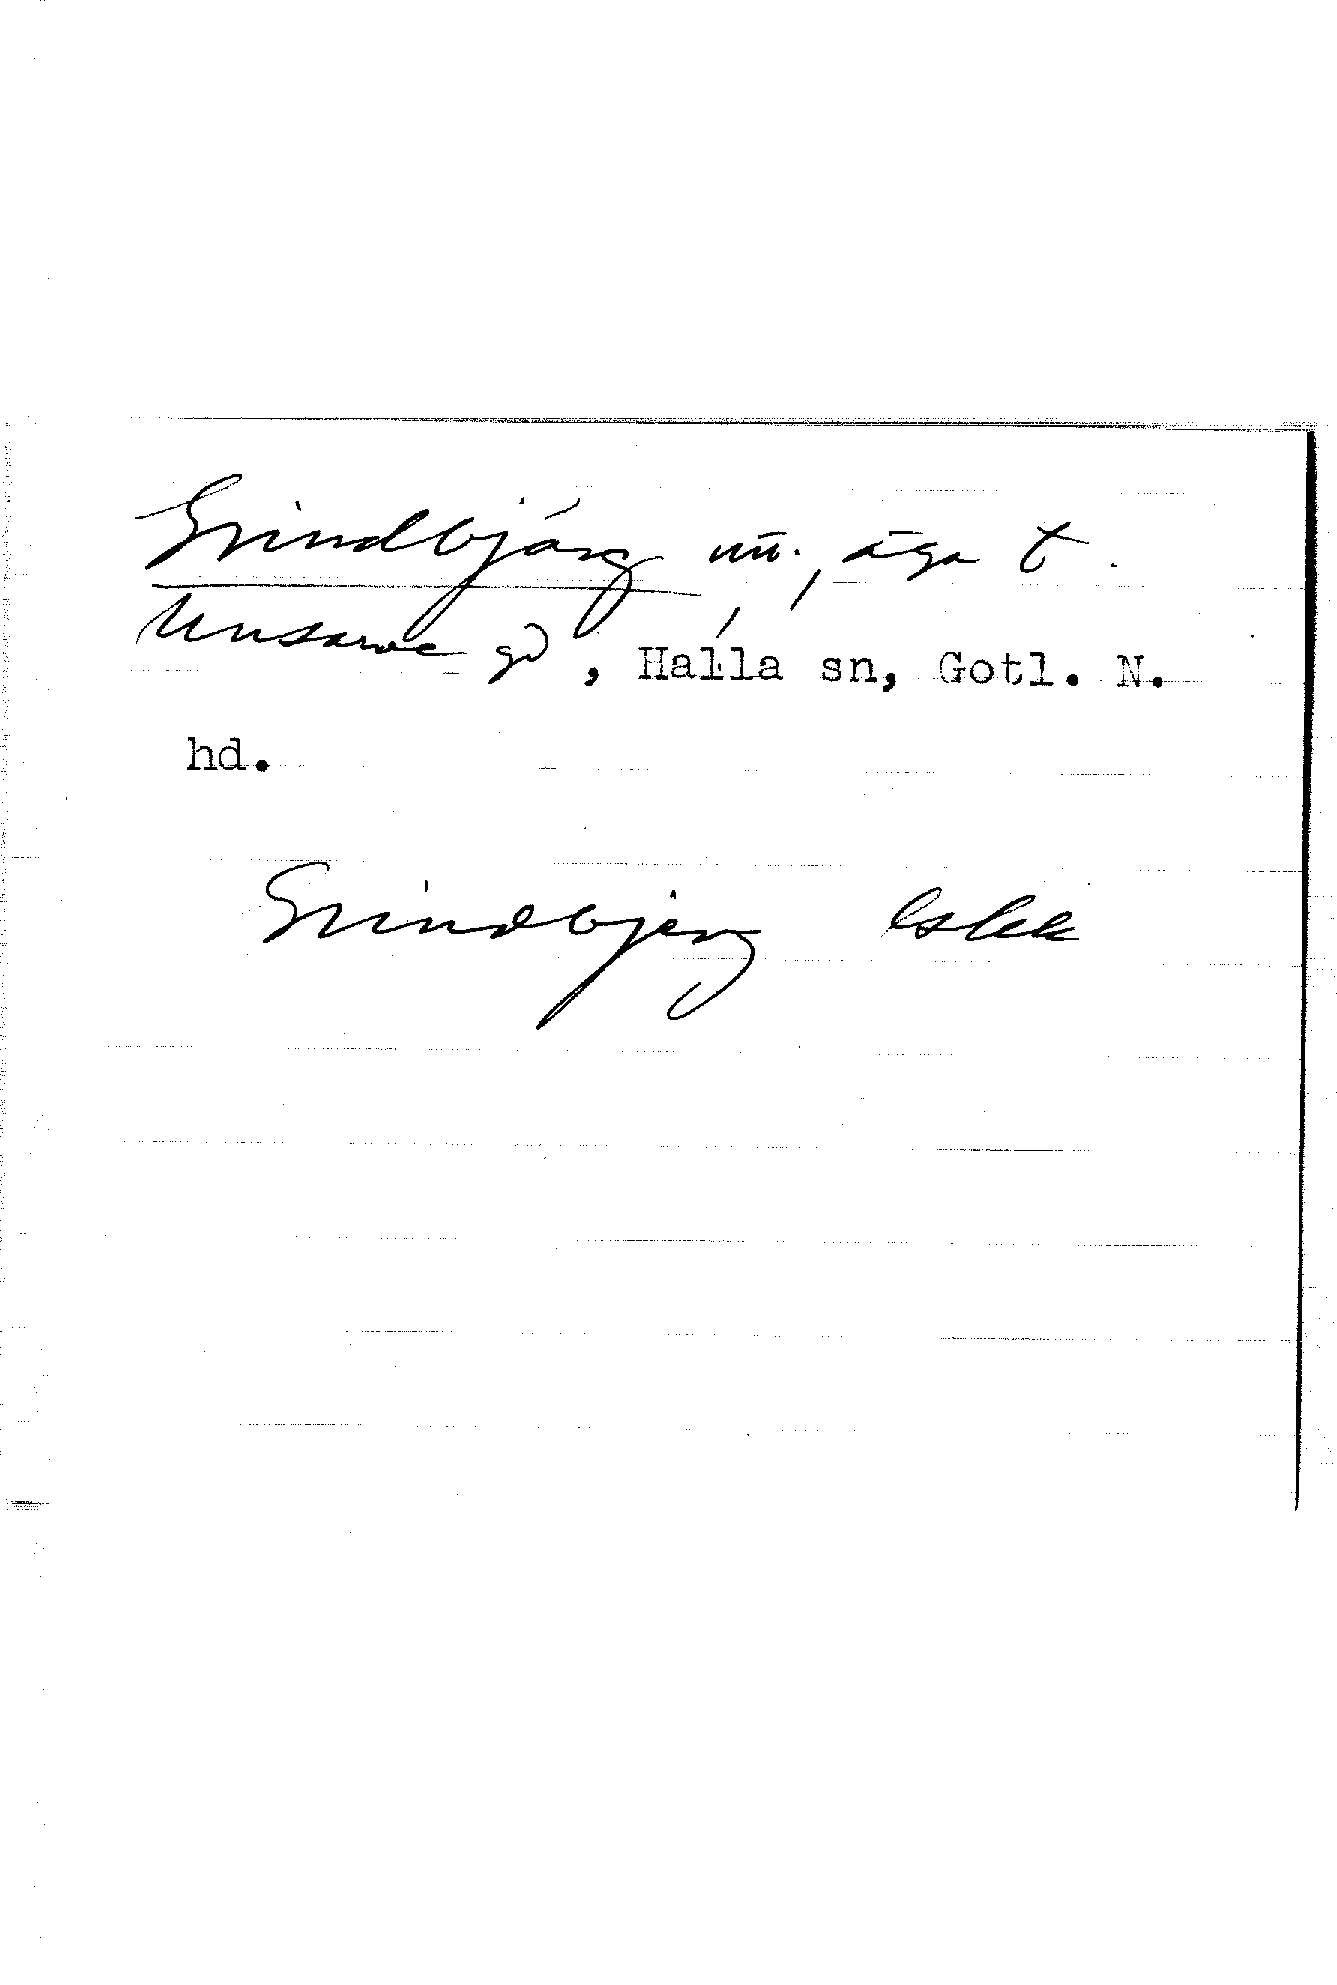 Grindbjárg un., äga t.
Unsarve gd, Halla sn, Gotl. N.
hd.
Grindbjerg Eskk